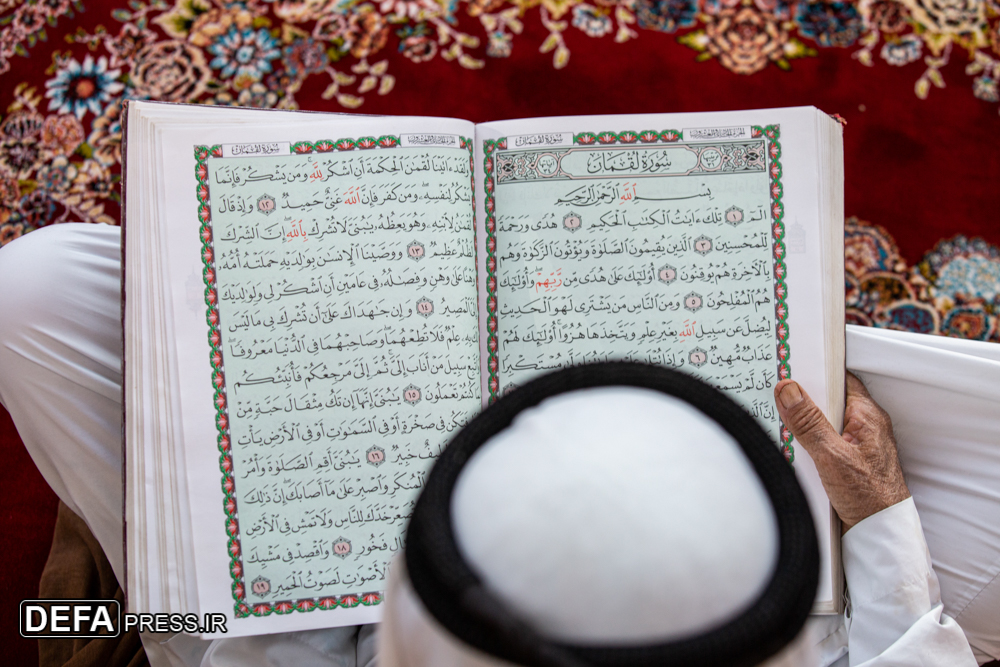 سُورَةُ لُقْمَانَ
سُورَةُ لُقْمَانَ
بِسْمِ ٱللَّهِ ٱلرَّحْمَٰنِ ٱلرَّحِيمِ
الٓمٓ ١ تِلْكَ ءَايَٰتُ ٱلْكِتَٰبِ ٱلْحَكِيمِ ٢ هُدًى وَرَحْمَةً
لِّلْمُحْسِنِينَ ٣ ٱلَّذِينَ يُقِيمُونَ ٱلصَّلَوٰةَ وَيُؤْتُونَ ٱلزَّكَوٰةَ وَهُم
بِٱلْءَاخِرَةِ هُمْ يُوقِنُونَ ٤ أُو۟لَٰٓئِكَ عَلَىٰ هُدًى مِّن رَّبِّهِمْ وَأُو۟لَٰٓئِكَ
هُمُ ٱلْمُفْلِحُونَ ٥ وَمِنَ ٱلنَّاسِ مَن يَشْتَرِى لَهْوَ ٱلْحَدِيثِ
لِيُضِلَّ عَن سَبِيلِ ٱللَّهِ بِغَيْرِ عِلْمٍ وَيَتَّخِذَهَا هُزُوًا أُو۟لَٰٓئِكَ لَهُمْ
عَذَابٌ مُّهِينٌ ٦ وَإِذَا تُتْلَىٰ مُسْتَكْبِرًا
كَأَن لَّمْ يَسْمَعْهَا
إِنَّ
سُورَةُ لُقْمَانَ
وَلَقَدْ ءَاتَيْنَا لُقْمَٰنَ ٱلْحِكْمَةَ أَنِ ٱشْكُرْ لِلَّهِ وَمَن يَشْكُرْ فَإِنَّمَا
يَشْكُرُ لِنَفْسِهِ وَمَن كَفَرَ فَإِنَّ ٱللَّهَ غَنِىٌّ حَمِيدٌ ١٢ وَإِذْ قَالَ
لُقْمَٰنُ لِٱبْنِهِ وَهُوَ يَعِظُهُ يَٰبُنَىَّ لَا تُشْرِكْ بِٱللَّهِ إِنَّ ٱلشِّرْكَ
لَظُلْمٌ عَظِيمٌ ١٣ وَوَصَّيْنَا ٱلْإِنسَٰنَ بِوَٰلِدَيْهِ حَمَلَتْهُ أُمُّهُ
وَهْنًا عَلَىٰ وَهْنٍ وَفِصَٰلُهُ فِى عَامَيْنِ أَنِ ٱشْكُرْ لِى وَلِوَٰلِدَيْكَ
إِلَىَّ ٱلْمَصِيرُ ١٤ وَإِن جَٰهَدَاكَ عَلَىٰ أَن تُشْرِكَ بِى مَا لَيْسَ
لَكَ بِهِ عِلْمٌ فَلَا تُطِعْهُمَا وَصَاحِبْهُمَا فِى ٱلدُّنْيَا مَعْرُوفًا
وَٱتَّبِعْ سَبِيلَ مَنْ أَنَابَ إِلَىَّ ثُمَّ إِلَىَّ مَرْجِعُكُمْ فَأُنَبِّئُكُم
بِمَا كُنتُمْ تَعْمَلُونَ ١٥ يَٰبُنَىَّ إِنَّهَا إِن تَكُ مِثْقَالَ حَبَّةٍ مِّنْ
فَتَكُن فِى صَخْرَةٍ أَوْ فِى ٱلسَّمَٰوَٰتِ أَوْ فِى ٱلْأَرْضِ يَأْتِ
لَطِيفٌ خَبِيرٌ ١٦ يَٰبُنَىَّ أَقِمِ ٱلصَّلَوٰةَ وَأْمُرْ
ٱلْمُنكَرِ وَٱصْبِرْ عَلَىٰ مَآ أَصَابَكَ إِنَّ ذَٰلِكَ
تُصَعِّرْ خَدَّكَ لِلنَّاسِ وَلَا تَمْشِ فِى ٱلْأَرْضِ
مُخْتَالٍ فَخُورٍ ١٨ وَٱقْصِدْ فِى مَشْيِكَ
ٱلْأَصْوَٰتِ لَصَوْتُ ٱلْحَمِيرِ ١٩
DEFAPRESS.IR